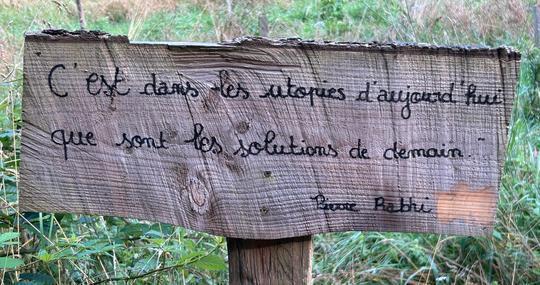 "C'est dans les utopies d'aujourd'hui
que sont les solutions de demain."
Pierre Rabhi